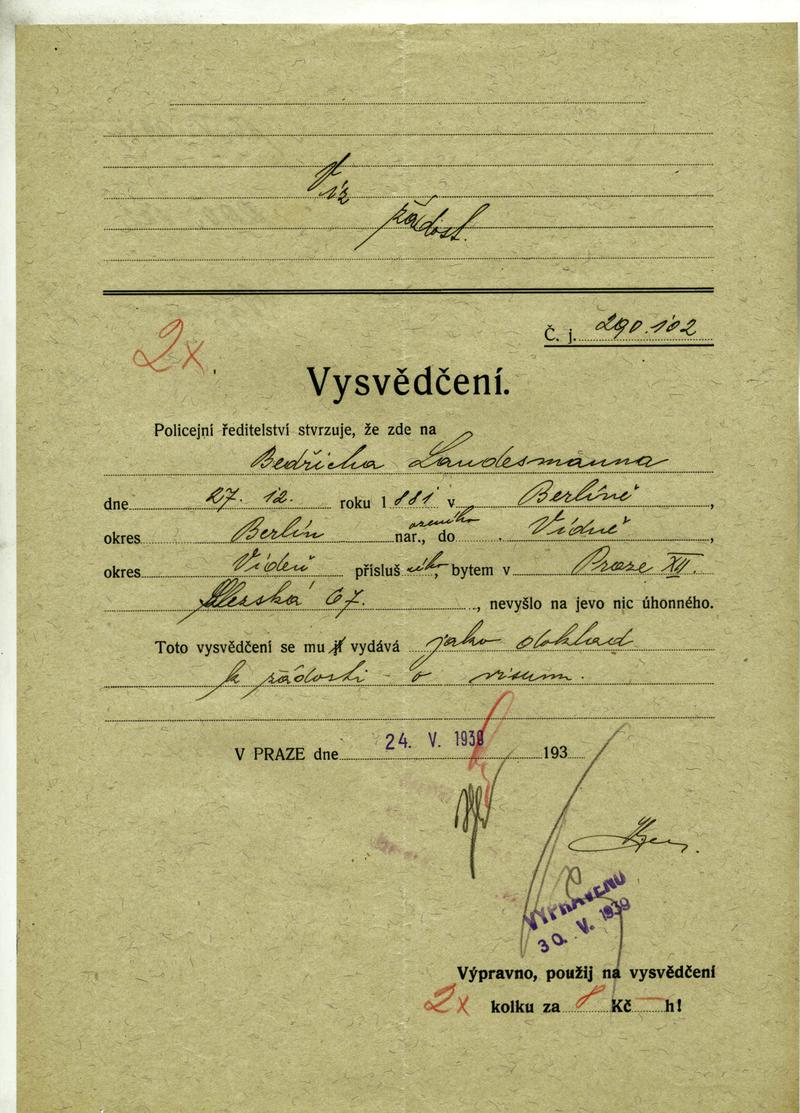 Viz
žádost.
2x
Č. j. 290.102
Vysvědčení.
Policejní ředitelství stvrzuje, že zde na
Bedřicha Landesmanna
dne 27. 12. roku 1881 v Berlíně,
okres Berlín nar.ozeného, do Vídně,
okres Vídeň příslušného, bytem v Praze XII.
Slezská 67., nevyšlo na jevo nic úhonného.
Toto vysvědčení se mu jí vydává jako doklad
k žádosti o visum.
V PRAZE dne 24. V. 1939 193
VYPRAVENO
30. V. 1939
Výpravno, použij na vysvědčení
2x kolku za 8 Kč — h!